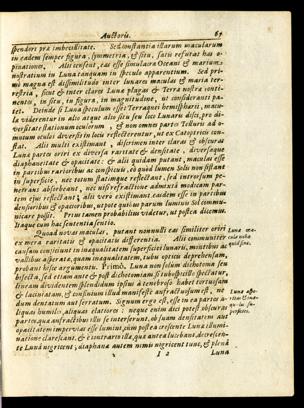 Auctoris. 67
spendore præ imbecillitate. Sed constantia illarum macularum
in eadem semper figura, symmetria, & situ, satis refutat has o-
piniones. Alii censent, eas esse simulacra Oceani & marium
nostratium in Luna tanquam in speculo apparentium. Sed pri-
mi magna est dissimilitudo inter lunares maculas & maria ter-
restria, sicut & inter claras Lunæ plagas & Terra nostra conti-
nentes, in situ, in figura, in magnitudine, ut consideranti pa-
tet. Deinde si Luna speculum esset Terraquei hemisphærii, macu-
læ viderentur in alio atque alio situ seu loco Lunaris disci, pro di-
versitate stationum oculorum, & non omnes partes Telluris ad o-
mnium oculos diversis in locis reflecterentur, ut ex Catoptricis con-
stat. Alii multi existimant, discrimen inter claras & obscuras
Lunæ partes oriri ex diversa raritate & densitate, diversaque
diaphaneitate & opacitate: & alii quidam putant, maculas esse
in partibus rarioribus ac conspicuis, eò quòd lumen Solis non sistant
in superficie, nec totum statimque reflectant, sed introrsum pe-
netrans absorbeant, nec nisi refractione admixta modicam par-
tem ejus reflectant; alii verò existimant easdem esse in partibus
densioribus & opacioribus, utpote quibus parum luminis Sol commu-
nicare possit. Prius tamen probabilius videtur, ut postea dicemus.
Itaque cum hac sententia sentio.
Quoad novas maculas, putant nonnulli eas similiter oriri
ex mera raritate & opacitatis differentia. Alii communiter
causam conjiciunt in inæqualitatem superficiei lunaris, montibus ac
vallibus asperatæ, quam inæqualitatem, tubo opticu deprehensam,
probant hisce argumentis. Primò, Luna non solum dichotoma seu
bisecta, sed etiam ante & post dichotomiam si tubospicillo spectatur,
lineam dividentem splendidum ipsius à tenebroso habet tortuosam
& laciniatam, & confinium illud non æquè est, ad mo-
dum dentatum aut serratum. Signum ergo est, esse in ea partes a-
liquas humiles, aliquas elatiores: neque enim dici potest obscuras
partes, quæ infractibus illis se interserunt, ob suam densitatem aut
opacitatem impervias esse lumini, cùm postea crescente Luna illumi-
natione clarescant, & è contrario illæ, quæ antea lucebant, decrescen-
te Lunâ nigrescent, diaphanæ autem nimis nigrescent tunc, & plenâ
I 2 Luna
Luna ma-
culæ novæ
quid sint.
Luna asper-
superficie.